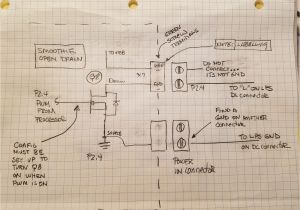 SMOOTHIE
OPEN DRAIN
TO FEB
GREEN
SCREW
TERMINALS
NOTE: LABELLING
Q8
CONNECT...
IT'S NOT GND
P2.4
TO "L" ON LPS
DC CONNECTOR
P2.4
PWM
FROM
PROCESSOR
FIND A
GND ON ANOTHER
CONNECTOR
SOURCE
P2.4
TO LPS GND
ON DC CONNECTOR
POWER
IN CONNECTOR
CONFIG
MUST BE
SET UP
TO TURN
Q8 ON
ON WHEN
PWM IS ON